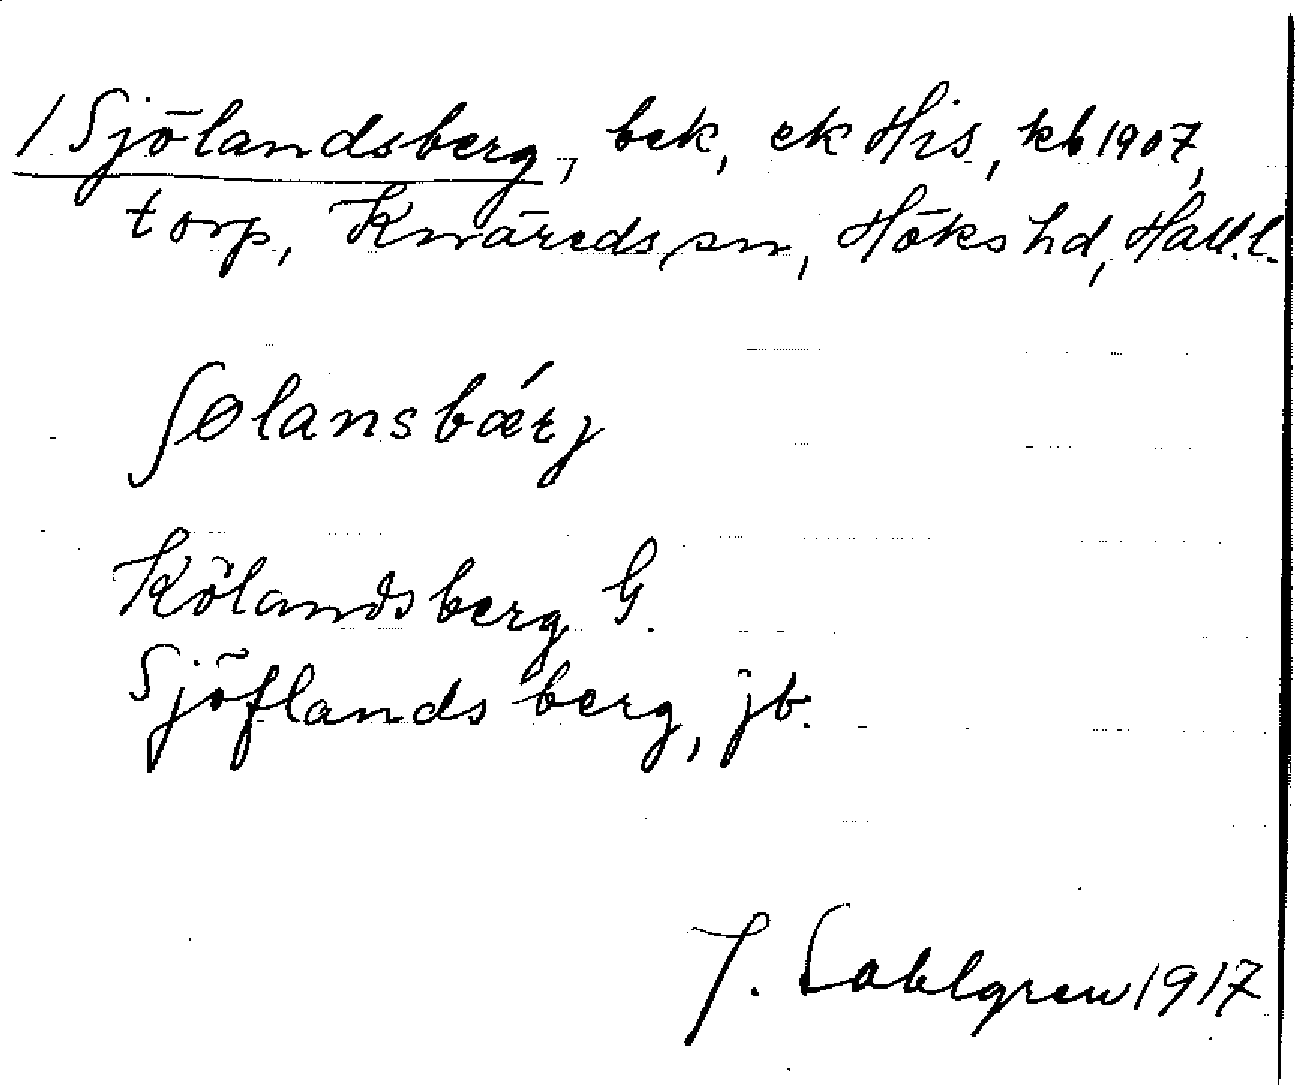 / Sjölandsberg, bek, ek His, kb 1907,
torp, Knäreds sn, Höks hd, Hall.l.
ʃølansbǽrj
Kölandsberg G.
Sjöflandsberg, jb.
J. Sahlgren 1917